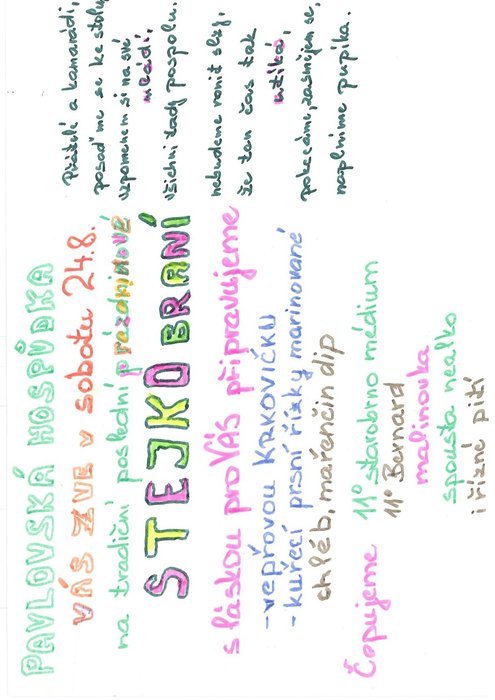 PAVLOVSKÁ HOSPŮDKA
VÁS ZVE v sobotu 24.8.
na tradiční poslední prázdninové
STEJKOBRANÍ
s láskou pro VÁS připravujeme
-vepřovou KRKOVIČKU
-kuřecí prsní řízky marinované
chléb, mařenčin dip
Čepujeme 11° starobrno médium
11° Bernard
malinovka
spousta nealko
i řízné pití
Přátelé a kamarádi,
posaďme se ke stolu,
vzpomenem si na své
mládí,
všichni tady pospolu.
nebudeme ronit slzy,
že ten čas tak
utíká,
pokecáme, zasmějem se,
naplníme pupíka.